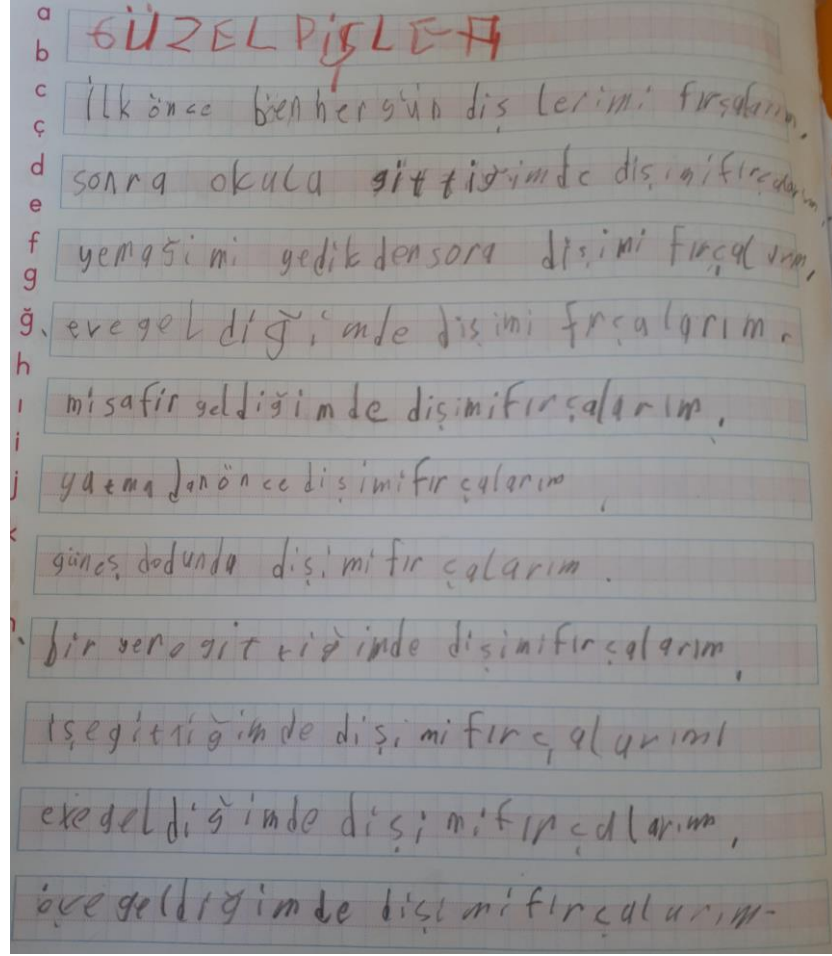 a
b
c
ç
d
e
f
g
ğ
h
ı
i
j
GÜZEL DİŞLER
ilk önce ben her gün diş lerimi fırçalarım,
sonra okula gittiğimde dişimi fırçalarım,
yemağimi yedik den sora dişimi fırçalarım,
eve gel diğimde dişimi frçalarım.
misafir geldiğimde dişimifırçalarım,
yatma danönce dişimifır çalarım,
güneş dodunda dişimi fır çalarım.
bir yere git tiğ imde dişimifırçalarım,
işegittiğimde dişimi fırçalarım
eve geldiğimde dişimifırçalarım,
geldiğimde dişimifırçalarım-